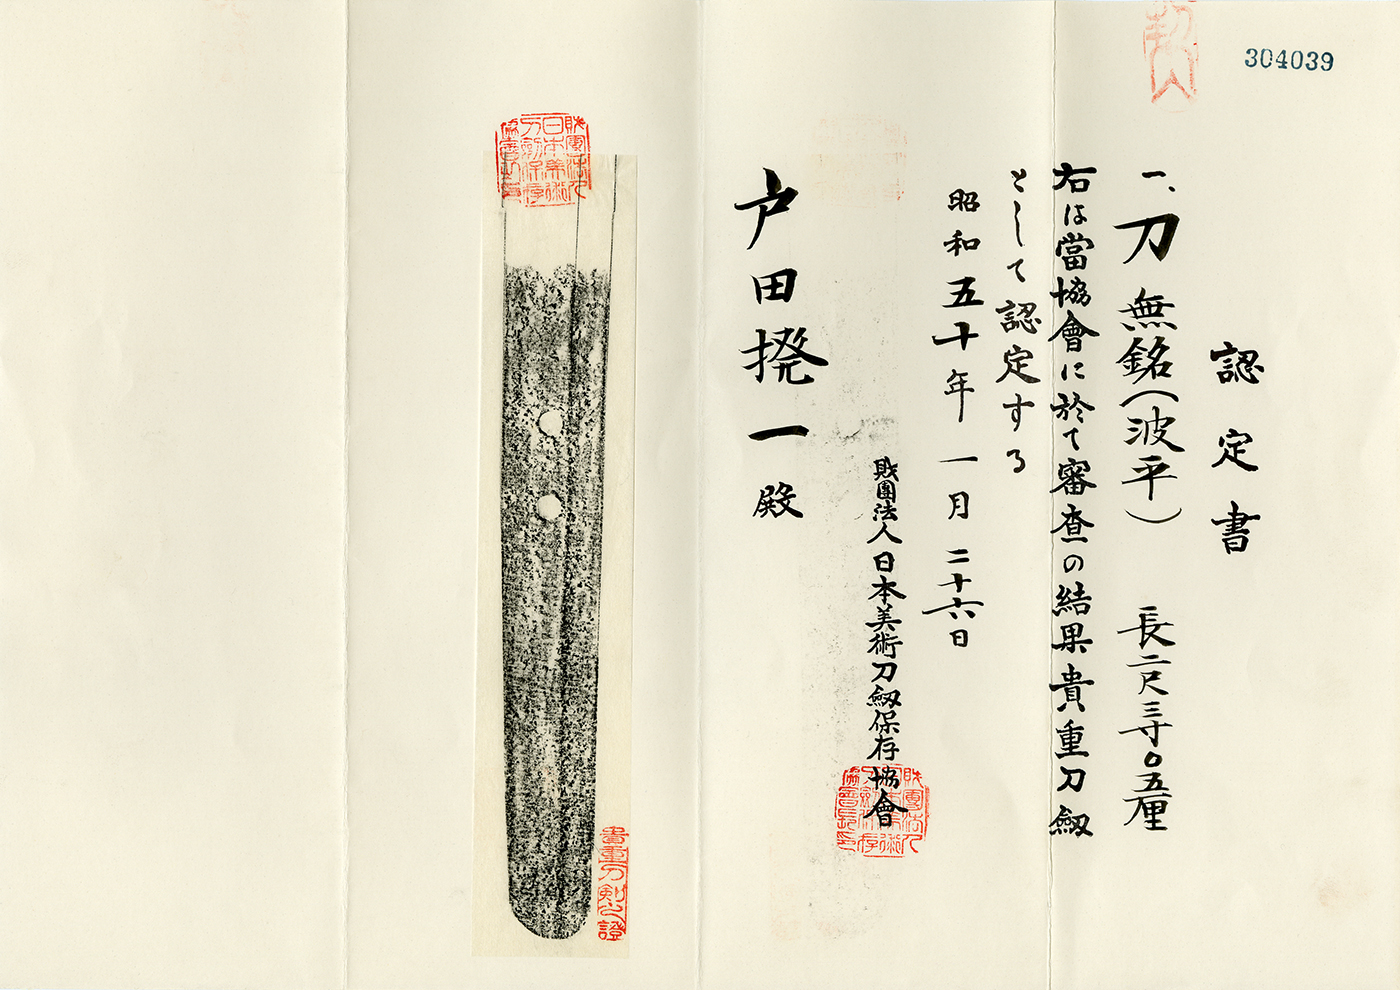 304039
認定書
一、刀 無銘(波平) 長二尺三寸〇五厘
右は當協會に於て審査の結果貴重刀劔
として認定する
昭和五十年一月二十六日
財團法人日本美術刀劔保存協會
戸田揆一殿
財團法人日本美術刀劍保存協會長印
財團法人日本美術刀劍保存協會長印
貴重刀剣之證